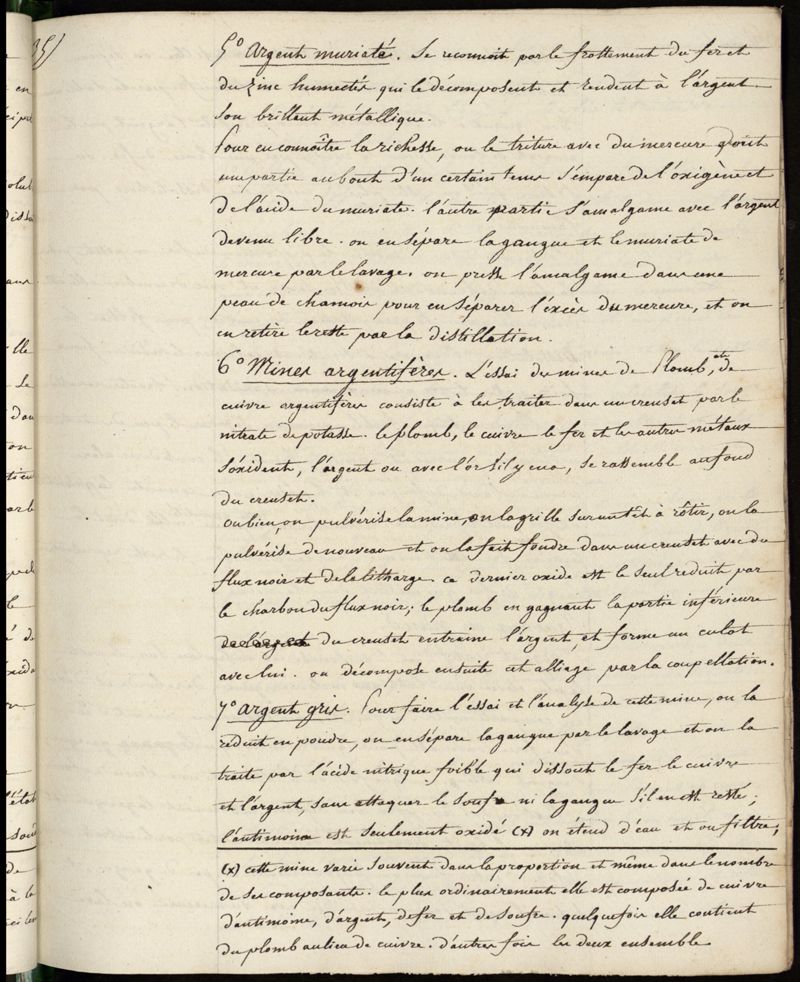 35)
5.° Argent muriaté. Se reconnoit par le frottement du fer et
du zinc humectés qui le décomposent et rendent à l'argent
son brillant métallique.
Pour en connoître la richesse, on le triture avec du mercure dont
une partie au bout d'un certain tems s'empare de l'oxigène et
de l'acide du muriate. l'autre partie s'amalgame avec l'argent
devenu libre. on en sépare la gangue et le muriate de
mercure par le lavage. on presse l'amalgame dans une
peau de chamois pour en séparer l'excès du mercure, et on
en retire le reste par la distillation.
6.° Mines argentifères. L'essai des mines de Plomb, et de
cuivre argentifères consiste à les traiter dans un creuset par le
nitrate de potasse. le plomb, le cuivre le fer et les autres métaux
s'oxident, l'argent ou avec l'or s'il y en a, se rassemble au fond
du creuset.
Ou bien, on pulvérise la mine, on la grille sur un têt à rôtir, on la
pulvérise de nouveau et on la fait fondre dans un creuset avec du
flux noir et de la litharge. ce dernier oxide est le seul réduit par
le charbon du flux noir; le plomb en gagnant la partie inférieure
du creuset entraine l'argent, et forme un culot
avec lui. on décompose ensuite cet alliage par la coupellation.
7.° argent gris. Pour faire l'essai et l'analyse de cette mine, on la
réduit en poudre, on en sépare la gangue par le lavage et on la
traite par l'acide nitrique foible qui dissout le fer le cuivre
et l'argent, sans attaquer le soufre ni la gangue s'il en est resté;
l'antimoine est seulement oxidé (x) on étend d'eau et on filtre;
(x) cette mine varie souvent dans la proportion et même dans le nombre
de ses composants. le plus ordinairement elle est composée de cuivre
d'antimoine, d'argent, de fer et de soufre. quelquefois elle contient
du plomb au lieu de cuivre. d'autres fois les deux ensemble